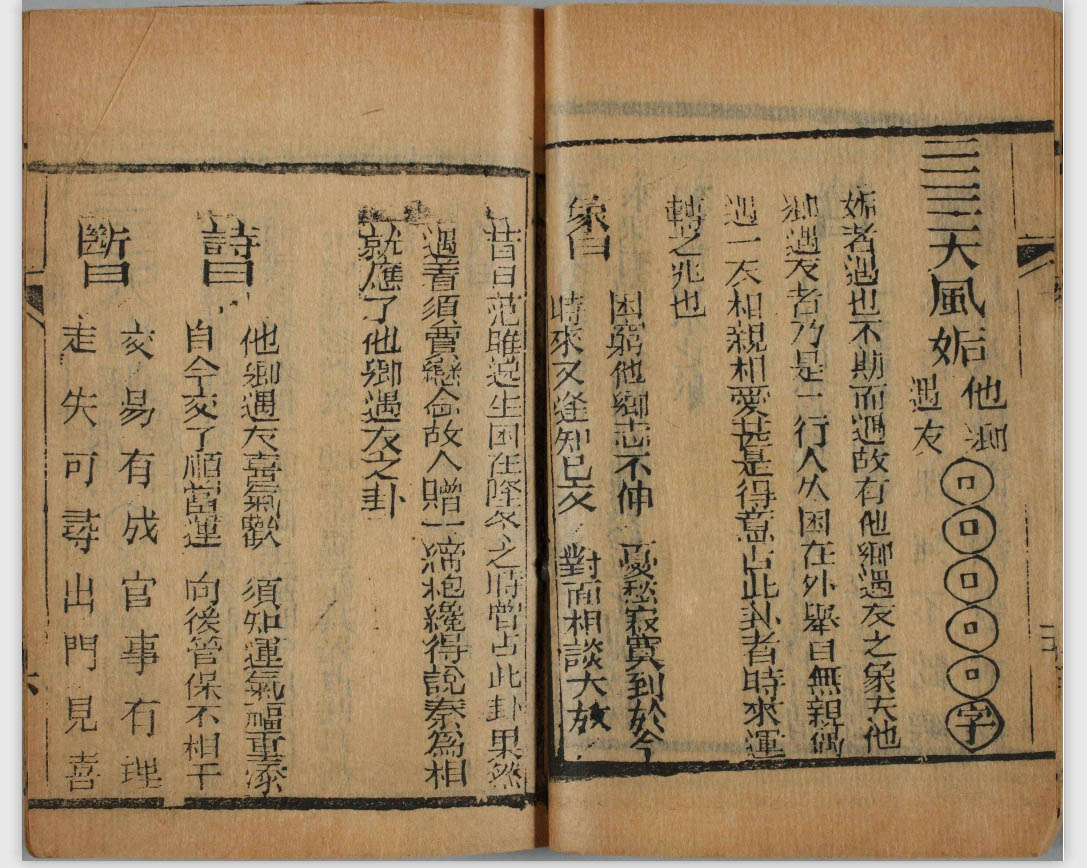 三三三天風姤 他鄉
遇友
口口口口口字
姤者遇也不期而遇故有他鄉遇友之象夫他
鄉遇友者乃是一行人久困在外舉目無親偶
遇一友相親相愛甚是得意占此卦者時來運
轉之兆也
象曰
困窮他鄉志不伸 憂愁寂寞到於今
時來又逢知己友 對面相談大放
昔日范雎逃生困在降冬之時曾占此卦果然
遇着須賈戀念故人贈一綈袍纔得說秦為相
就應了他鄉遇友之卦
詩曰
他鄉遇友喜氣歡 須知運氣福重添
自今交了順當運 向後管保不相干
斷曰
交易有成官事有理
走失可尋出門見喜